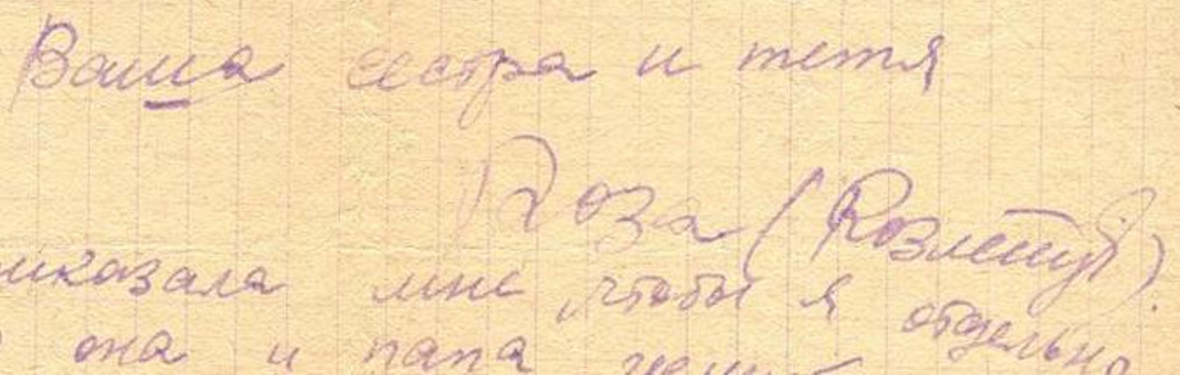 Ваша сестра и тетя
Роза (
иказала мне, чтобы я отдельно
она и папа